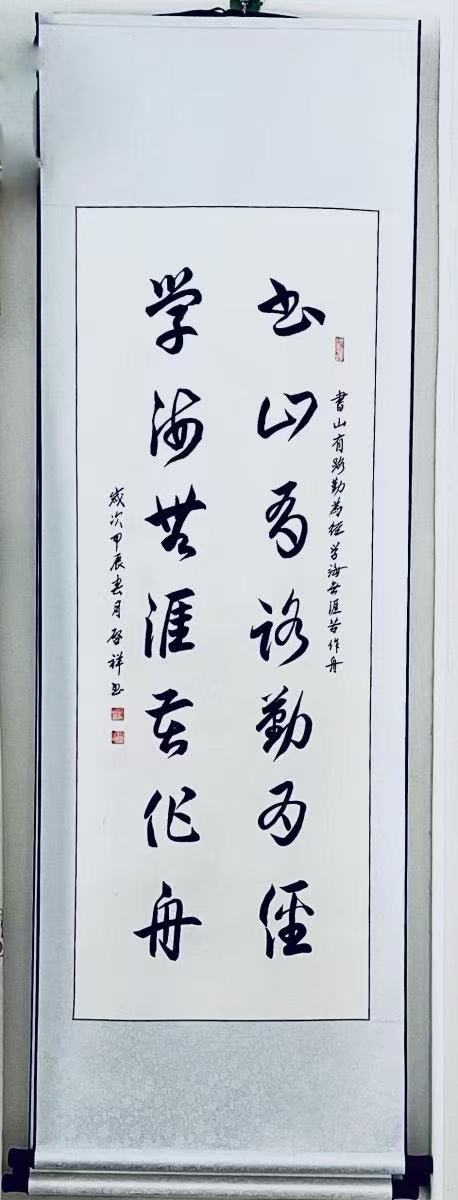 书山有路勤为径
書山有路勤为径学海無涯苦作舟
学海無涯苦作舟
岁次甲辰春月啓祥书